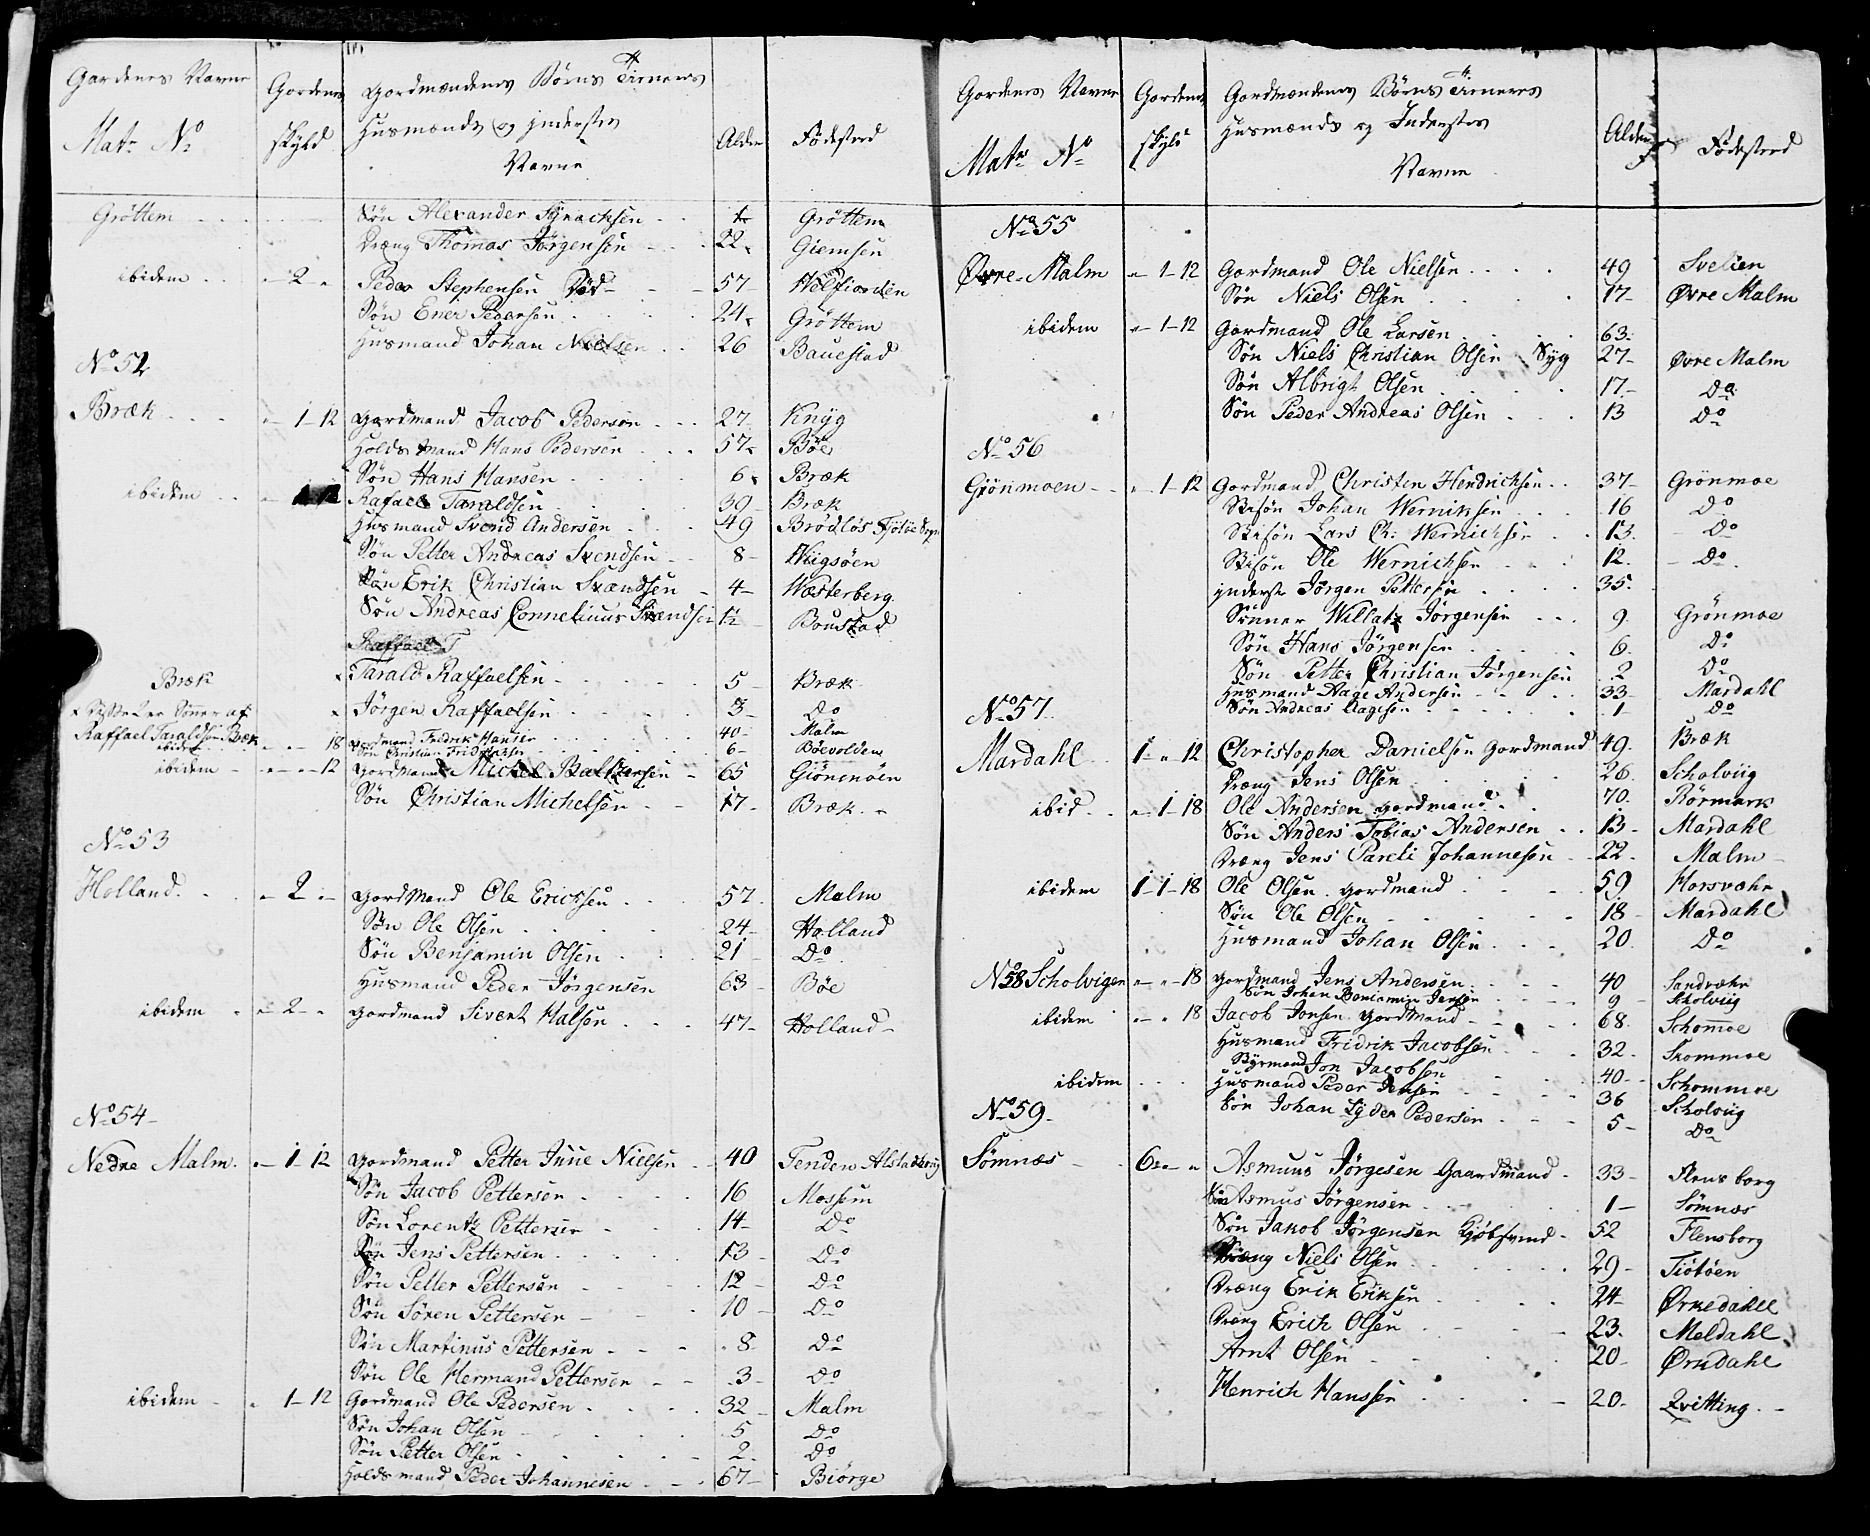 Gardenes Navne
Mat: No
Gardens skyld
Gordmændenes Børns Tieneres
Husmænds og Inderster
Navne
Alder
Fødested
Grøttem Søn Alexander 1 Grøttem
Dræng Thomas Jørgensen 22 Giemsen
ibidem - 2 - Peder Stephensen Død 57 Welfiorden
Søn Ener Pedersen 24 Grøttem
Husmand Johan Nielsen 26 Bauestad
No 52
Bræk - 1-12 Gordmand Jacob Pedersen 27 Knyg
Holdsmand Hans Pedersen 57 Bøe
Søn Hans Hansen 6 Bræk
ibidem Rafael Taraldsen 39 Bræk
Husmand Svend Andersen 49 Brødløs Tjøtøe Sogn
Søn Petter Andreas Svendsen 8 Wiigsøen
Søn Erik Christian Svændsen 4 Wæsterberg
Søn Andreas Conneliuus Svændsen 1½ Boustad
Raffael T
Bræk x Tarald Raffaelsen 5 Bræk
x Disse 2 er Sønner af x Jørgen Raffaelsen 3 Do
Raffael Taraldsen Bræk
ibidem - - 18 Gordmand Fredrik Hansen 40 Malm
Søn Christian Fridriksen 6 Bøevolden
ibidem - - 12 Gordmand Michel Baltzersen 65 Giønmoen
Søn Christian Michelsen 17 Bræk
No 53
Holland - 2 - Gordmand Ole Ericksen 57 Malm
Søn Ole Olsen 24 Holland
Søn Benjamin Olsen 21 Do
Husmand Peder Jørgensen 63 Bøe
ibidem - 2 - Gordmand Sivert Halsen 47 Holland
No 54
Nedre Malm - 1-12 Gordmand Petter Juue Nielsen 40 Tenden Alstadhoug
Søn Jacob Pettersen 16 Mossem
Søn Lorentz Pettersen 14 Do
Søn Jens Pettersen 13 Do
Søn Petter Pettersen 12 Do
Søn Søren Pettersen 10 Do
Søn Martinus Pettersen 8 Do
Søn Ole Hermand Pettersen 3 Do
ibidem - 1-12 Gordmand Ole Pedersen 32 Malm
Søn Johan Olsen 5 Do
Søn Petter Olsen 2 Do
Holdsmand Peder Johannesen 67 Biørge
Gordenes Navne
Mat: No
Gordens skyld
Gordmændenes Børns Tieneres
Husmænds og Inderstes
Navne
Alder
Fødested
No 55
Øvre Malm - 1-12 Gordmand Ole Nielsen 49 Svelien
Søn Niels Olsen 17 Øvre Malm
ibidem - 1-12 Gordmand Ole Larsen 63
Søn Niels Christian Olsen Syg 27 Øvre Malm
Søn Albrigt Olsen 17 Do
Søn Peder Andreas Olsen 13 Do
No 56
Giønmoen - 1-12 Gordmand Christen Hendrichsen 37 Grønmoe
Stifsøn Johan Werniksen 16 Do
Stifsøn Lars Ch: Wernichsen 13 Do
Stifsøn Ole Wernichsen 12 Do
Inderst Jørgen Pettersen 35
Sønner Willatz Jørgensen 9 Grønmoe
Søn Hans Jørgensen 6 Do
Søn Petter Christian Jørgensen 2 Do
Husmand Aage Andersen 33 Mardahl
Søn Andreas Aagesen 1 Do
No 57
Mardahl 1 - 12 Christopher Danielsen Gordmand 49 Bræk
Dræng Jens Olsen 26 Scholviig
ibid - 1-18 Ole Andersen Gordmand 70 Rørmark
Søn Anders Tobias Andersen 13 Mardahl
Dræng Jens Pareli Johannesen 22 Malm
ibidem 1-1-18 Ole Olsen Gordmand 59 Horsvæhr
Søn Ole Olsen 18 Mardahl
Husmand Johan Olsen 20 Do
No 58 Scholvigen - - 18 Gordmand Jens Andersen 40 Sandvæhr
Søn Johan Beniamin Jensen 9 Scholviig
ibidem - - 18 Jacob Jonsen Gordmand 68 Schomoe
Husmand Fridrik Jacobsen 32 Skommoe
Styrmand Jon Jacobsen 40 Schommoe
ibidem Husmand Peder Jensen 36 Scholviig
Søn Johan Lyder Pedersen 5 Do
No 59
Sømnæs 6 - - Asmuus Jørgesen Gaardmand 33 Flensborg
Søn Asmus Jørgensen 1 Sømnæs
Søn Jakob Jørgensen Kjøbsvend 52 Flensborg
Dræng Niels Olsen 29 Tiøtøen
Dræng Erik Eriksen 24 Ørkedahll
Dræng Erich Olsen 23 Meldahl
Arnt Olsen 20 Ørkdahl
Henrich Hanssen 20 Qvitting